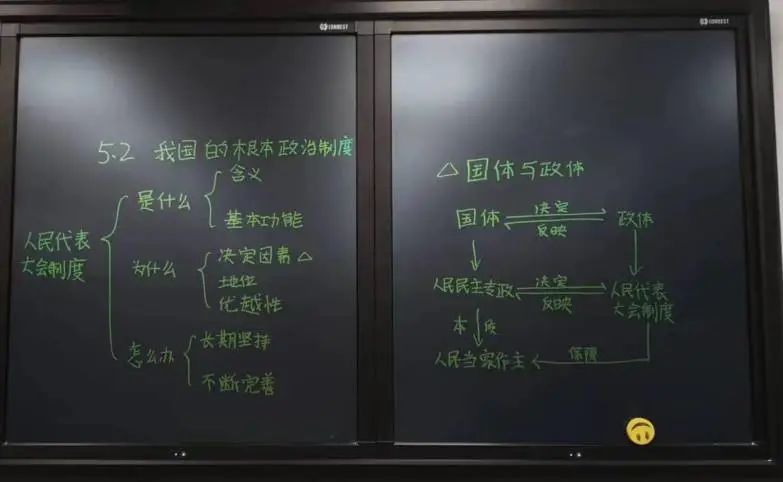 CORBEST
CORBEST
5.2 我国的根本政治制度
人民代表
大会制度
是什么
含义
基本功能
为什么
决定因素 △
地位
优越性
怎么办
长期坚持
不断完善
△ 国体与政体
国体 决定 政体
反映
人民民主专政 决定 人民代表
反映 大会制度
本质
人民当家作主 保障